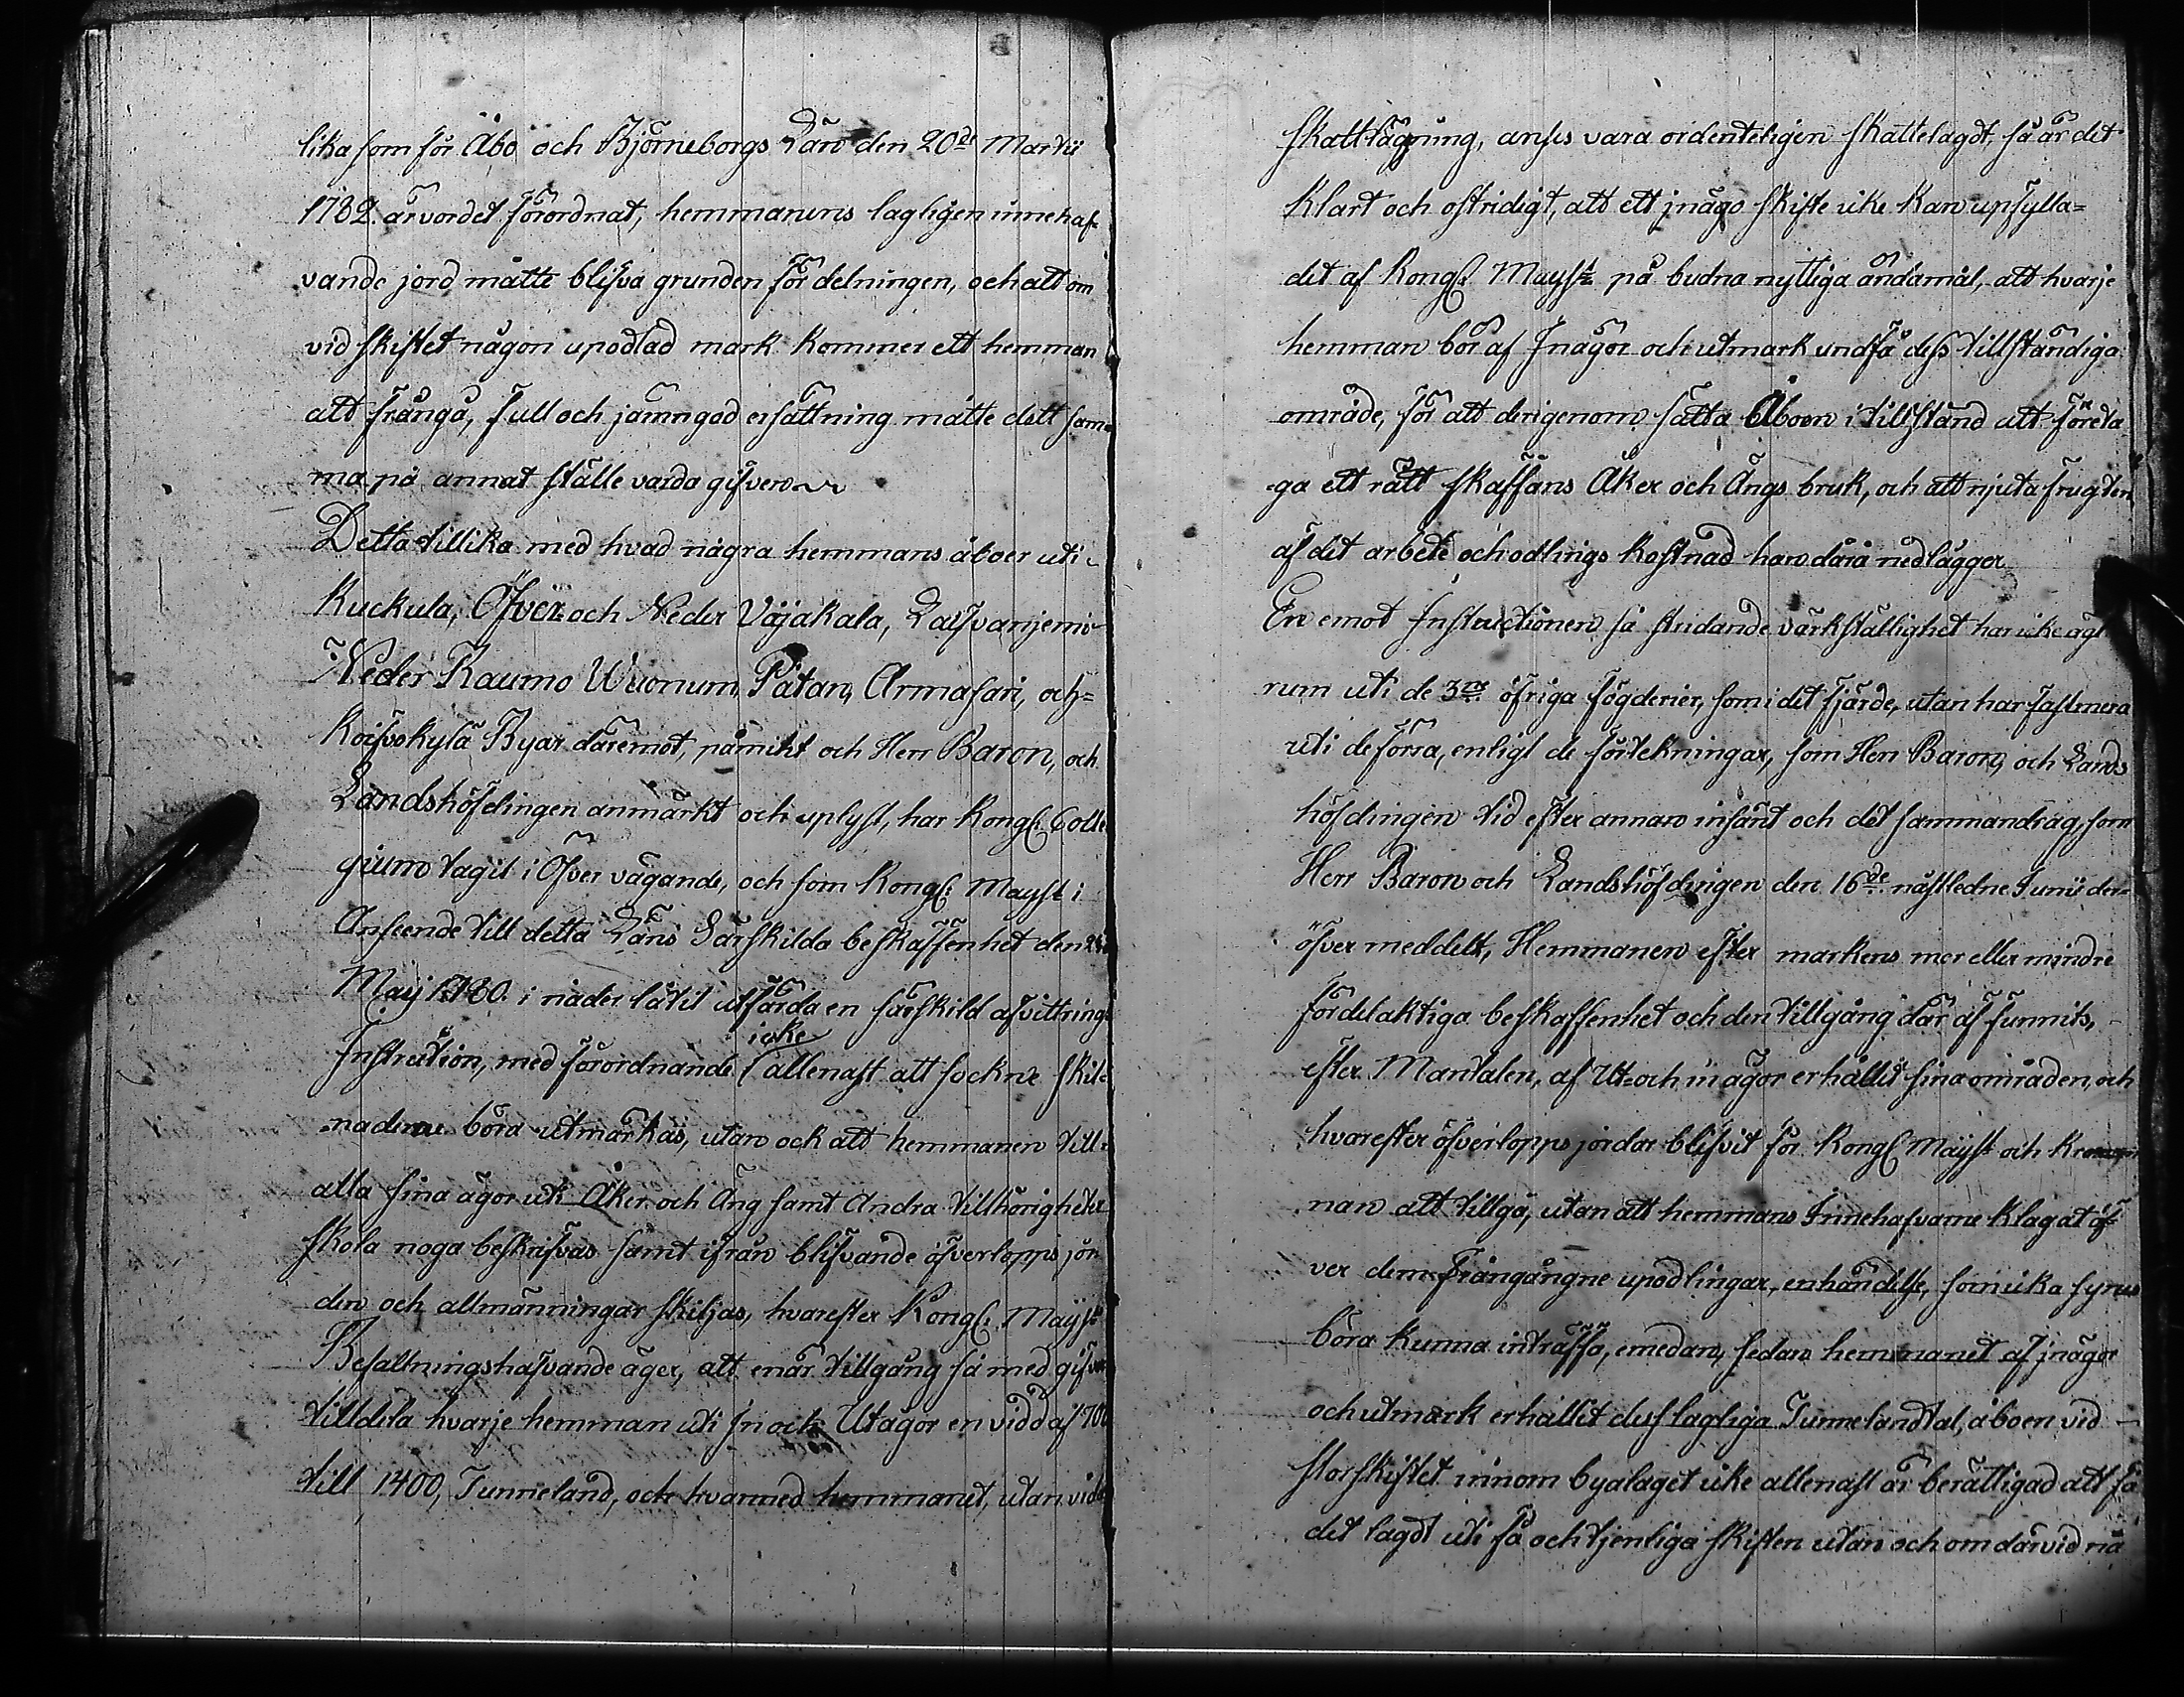 lika som för Åbo och Björneborgs Län den 20de Martii
1782 är vordet förordnat, hemmanens lagligen innehaf-
vande jord måtte blifva grunden för delningen, och att om
vid skiftet någon upodlad mark kommer ett hemman
att frångå, full och jämngod ersättning måtte dett sam-
ma på annat ställe varda gifven
Detta tillika med hvad några hemmans åboer uti
Kuckula, Öfver och Neder Vojakala,
Neder Raumo Wuonum, Pätan, Armasari, och=
Koifvokylä Byar däremot, påmint och Herr Baron, och
Landshöfdingen anmärkt och uplyst, har Kongl: Colle
gium tagit i Öfver vägande, och som Kongl: Mayst i
Anseende till detta Läns Särskilda beskaffenhet den
Maij 1780. i nåder låtit utfärda en särskild afvittrings
icke
Instrution, med förordnande allenast att sockne skil-
naderne böra utmärkas, utan ock att hemmanen till
alla sina ägor uti Åker och Äng samt Andra tillhörigheter
skola noga beskrifvas samt ifrån blifvande öfverlopps jor
den och allmänningar skiljas, hvarefter Kongl: Mayst
Befaltningshafvande äger, att enär tillgång så med gifver
tilldela hvarje hemman uti In och Utägor en vidd af 700
till 1400, Tunneland, och hvarmed hemmanet, utan vide
skattläggning, anses vara ordenteligen skattelagdt, så är det
Klart och ostridigt, att ett jnägo skifte icke kan upfylla=
det af Kongl Mayst på budna nyttiga ändamål, att hvarje
hemman bör af Inägor och utmark undfå dess tillständiga
område, för att derigenom sätta Åboen i tillstånd att företa
ga ett rätt skaffans Åker och Ängs bruk, och att njuta frugten
af det arbete och odlings kostnad han dära nedlägger
En emot Instructionen så stridande värkställighet har icke ägt
rum uti de 3ne öfriga fögderier, som i det fjärde, utan har fastmera
uti de förra, enligt de förtekningar, som Herr Baron, och Lands
höfdingen tid efter annan insänt och det sammandrag, som
Herr Baron och Landshöfdingen den 16de nästledne Junii der-
öfver meddelt, Hemmanen efter markens mer eller mindre
fördelaktiga beskaffenhet och den tillgång där af funnits,
efter Mantalen, af Ut- och inägor erhållit sina områden, och
hvarefter öfverlopps jordar blifvit för Kongl Mayst och Kro
nan att tillgå, utan att hemmans Innehafvarne klagat öf-
ver dem frångångne upodlingar, en händelse, som icka synes
böra kunna inträffa, emedan, sedan hemmanet af jnägor
och utmark erhållit dess lagliga Tunnelandtal, åboen vid
storskiftet innom byalaget icke allenast är berättigad att få
det lagdt uti få och tjenliga skiften utan och om därvid nå